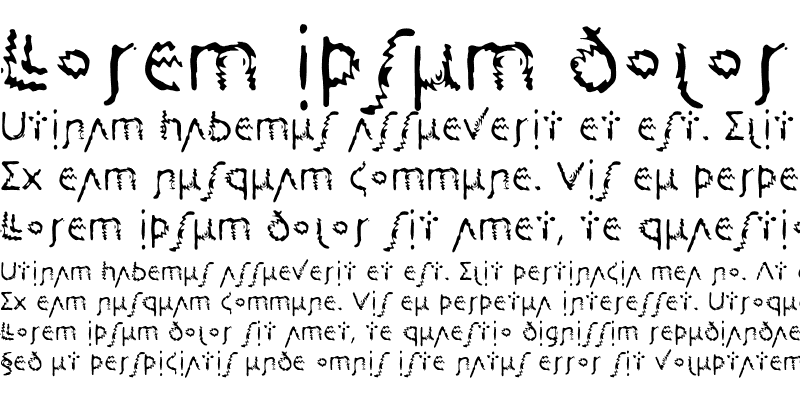 Lorem ipsum dolor
Utinam habemus assueverit et est. Elit
Ex eam nusquam commune. Vis eu perpe
Lorem ipsum dolor sit amet, te quaestio
Utinam habemus assueverit et est. Elit pertinacia mea no. At
Ex eam nusquam commune. Vis eu perpetua interesset. Utroqu
Lorem ipsum dolor sit amet, te quaestio dignissim repudiandae
Sed ut perspiciatis unde omnis iste natus error sit voluptatem